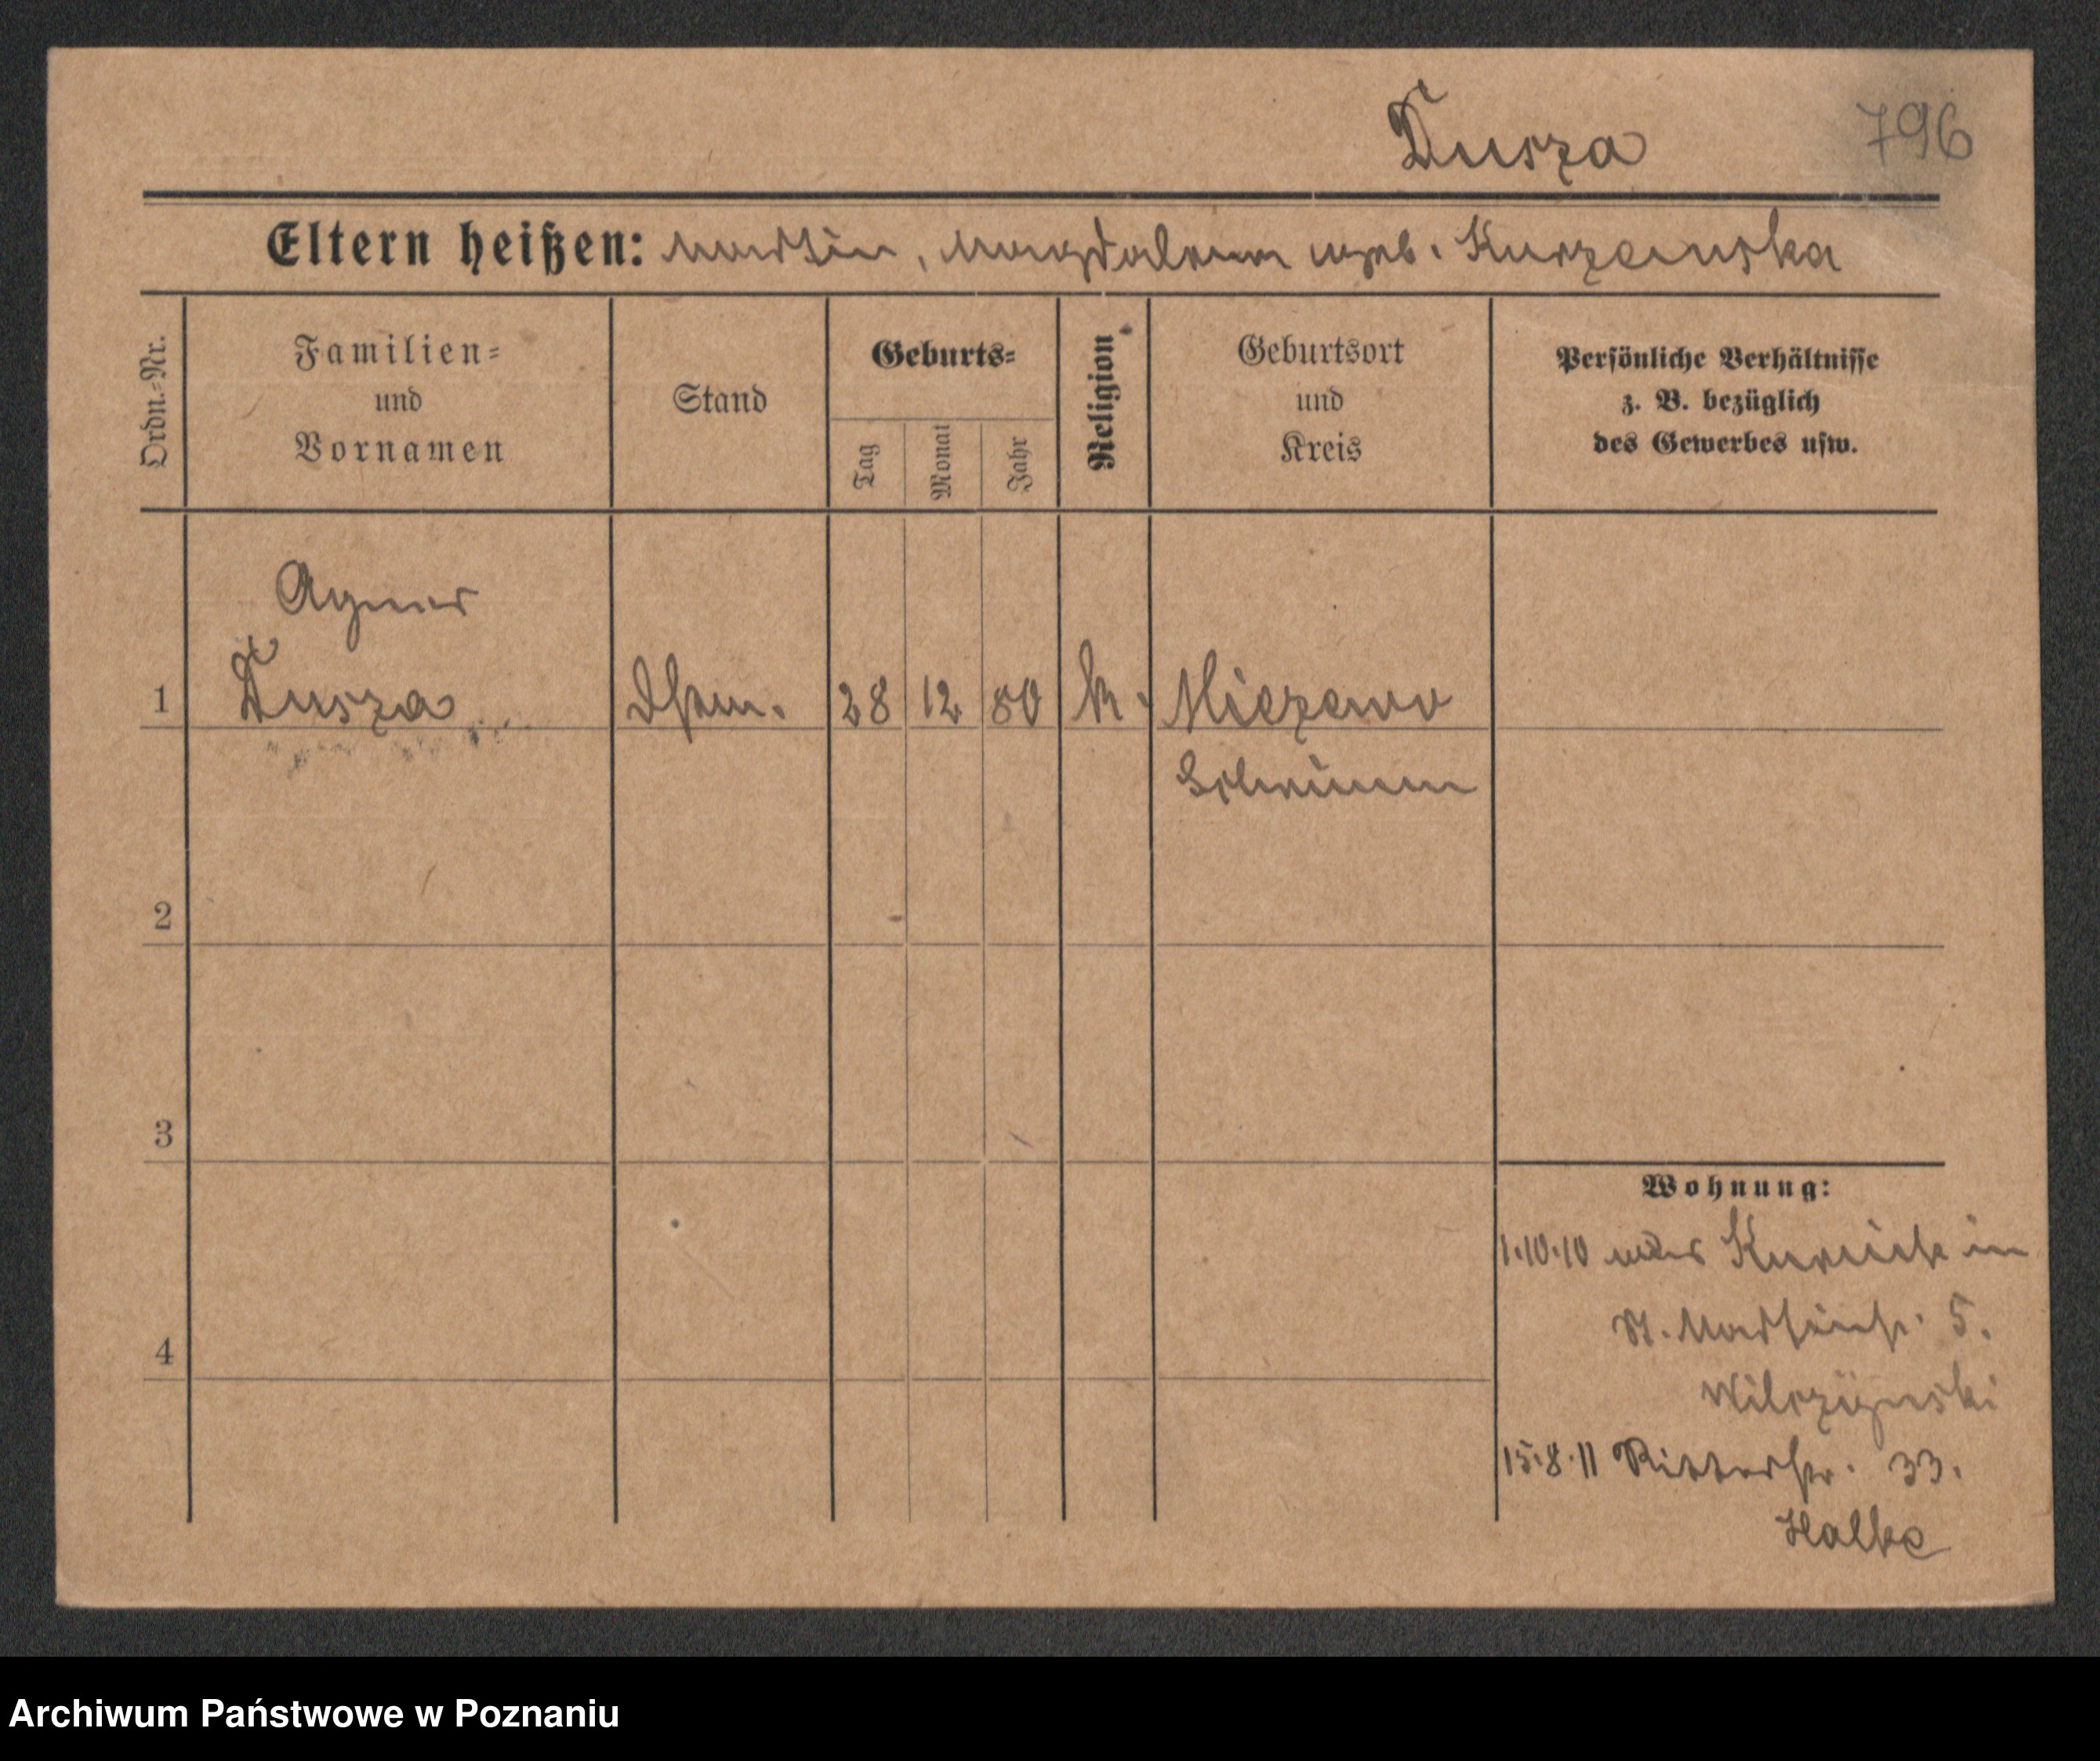 Dusza 796
Eltern heißen: Martin, Magdalena geb. Kurzewska
Ordn.-Nr.
Familien-
und
Vornamen
Stand
Geburts-
Tag
Monat
Jahr
Religion
Geburtsort
und
Kreis
Persönliche Verhältnisse
z. B. bezüglich
des Gewerbes usw.
Agnes
1 Dusza 28 12 80 k. Mieczewo
Schrimm
2
3
Wohnung:
1.10.10 in
St. Martinstr. 5.
4
Wilczynski
15.8.11 Ritterstr. 33.
Halke
Archiwum Państwowe w Poznaniu